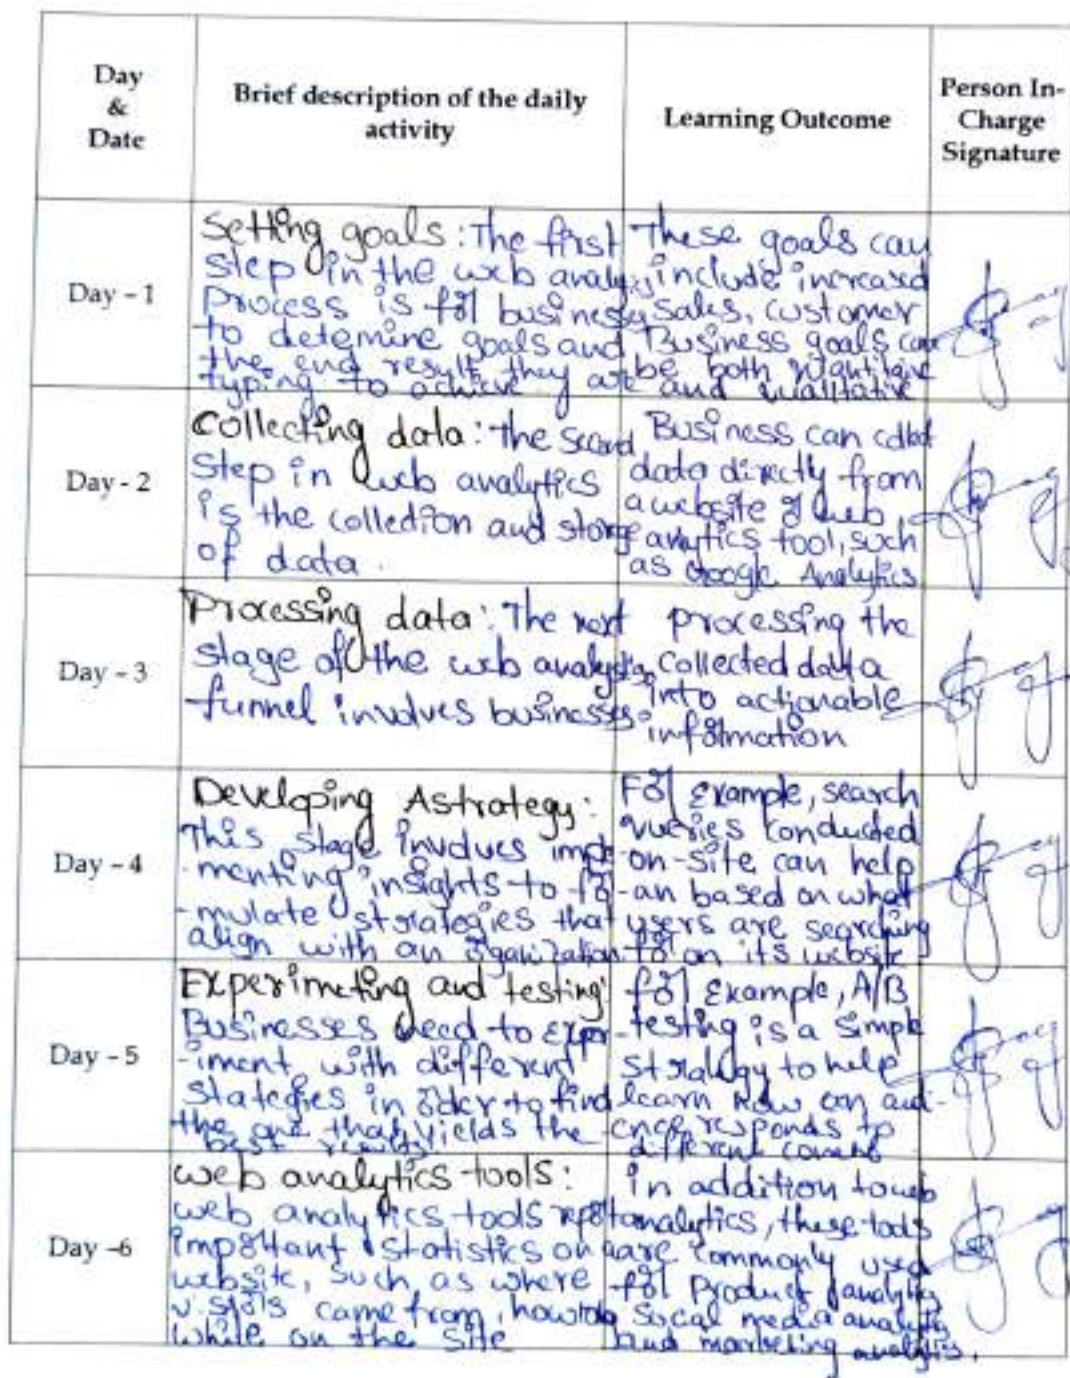 Day
&
Date
Brief description of the daily
activity
Learning Outcome
Person In-
Charge
Signature
Day - 1
Setting goals: The first
step in the web analy
process is for businesses
to determine goals and
the end result they are
typing to achieve
These goals can
include increased
sales, customer
Business goals can
be both
and
Day - 2
Collecting data: the second
step in web analytics
is the collection and storage
of data.
Business can
data directly from
a website or web
analytics tool, such
as Google Analytics
Day - 3
Processing data: The next
stage of the web analytics
funnel involves businesses
processing the
collected data
into actionable
information
Day - 4
Developing A strategy:
This stage involves imple
-menting insights to for
-mulate strategies that
align with an organization
For Example, search
queries conducted
on-site can help
-an based on what
users are searching
for on its website
Day - 5
Experimeting and testing:
Businesses need to exper
-iment with different
stategies in order to find
the one that yields the
best results.
for Example, A/B
testing is a simple
strategy to help
learn how an audi-
ence responds to
different
Day -6
web analytics tools:
web analytics tools report
important statistics on a
website, such as where
visitors came from, how
while on the site
in addition to web
analytics, these tools
are commonly used
for product analytics
social media analytics
and marketing analytics.